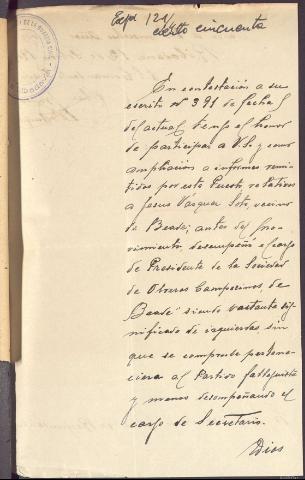 Exp 124
ciento cincuenta
En contestación a su
escrito nº 391 de fecha 1
del actual, tengo el honor
de participar a V.S. y como
ampliación a informes remi-
tidos por este Puesto, relativos
a Jesus Vazquez Soto, vecino
de Beade; antes del mo-
vimiento desempeñó el cargo
de Presidente de la Sociedad
de Obreros Campesinos, de
Beade" siendo vastante sig-
nificado de izquierdas, sin
que se compruebe pertene-
ciera al Partido
y menos desempeñando el
cargo de Secretario.
Dios